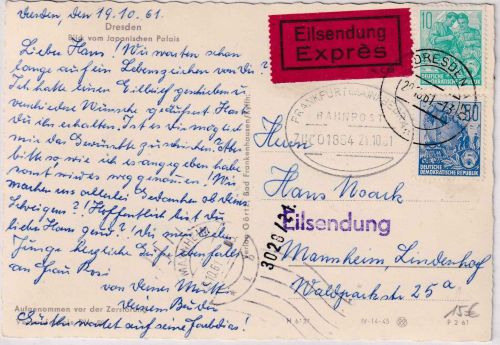 Dresden, den 19.10.61.
Dresden
Blick vom Japanischen Palais
Liebe Hans! Wir warten schon
lange auf ein Lebenszeichen von dir?
Ich hatte einen Eilbrief geschrieben u.
verschiedene Wünsche geäußert. Hast
du ihn erhalten. Ist es dir möglich
mir das Gewünschte zu schicken. Aber
bitte so wie ich es angegeben habe
sonst wird es weggenommen. Wir
machen uns allerlei Gedanken ob deines
Schweigens? Hoffentlich bist du
liebe Hans ganz? dir mein lieber
Junge herzliche Grüße ebenfalls
an Frau Rosi
von deiner Mutti
deinem Bruder
wartet auf seine
Aufgenommen vor der Zerstörung
Verlag Görtz, Bad Frankenhausen/Kyffh.
Eilsendung
Exprès
10
DEUTSCHE
DEMOKRATISCHE
REPUBLIK
DEUTSCHE
DEMOKRATISCHE
REPUBLIK
DRESDEN
FRANKFURT (MAIN)
BAHNPOST
ZUG 01864 21.10.61
MANNHEIM
Herrn
Hans Noack
Eilsendung
3028/21
Mannheim, Lindenhof
Waldparkstr. 25a
15€
IV-14-45
P 2 61